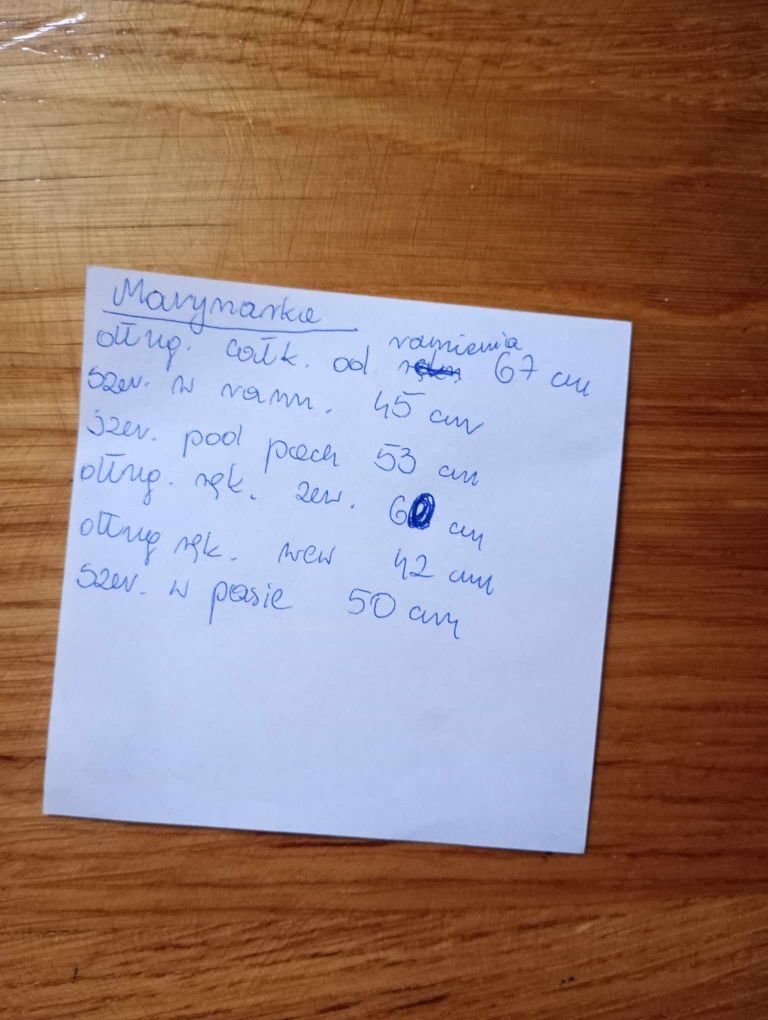 Marynarka
dług. całk. od ramienia 67 cm
szer. w ram. 45 cm
szer. pod pach 53 cm
dług. ręk. zew. 60 cm
dług ręk. wew 42 cm
szer. w pasie 50 cm